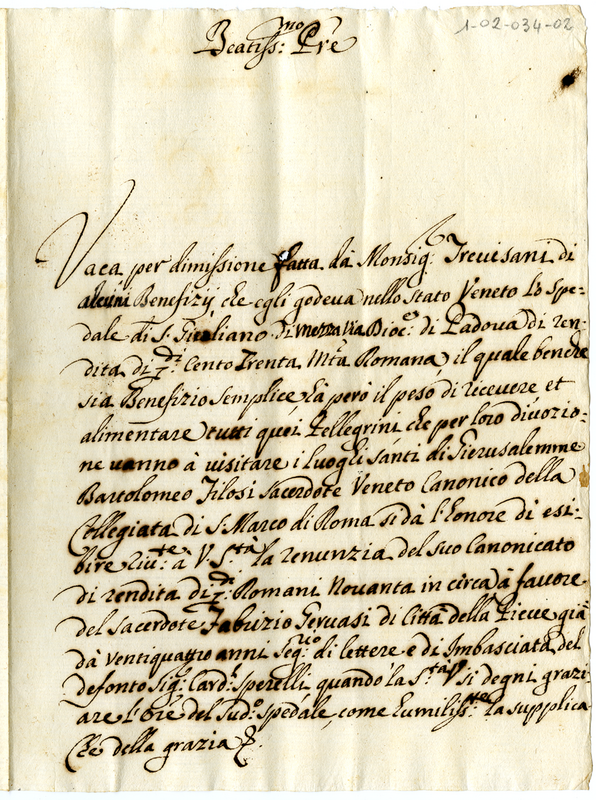 1-02-034-02
Beatiss:mo Pre
Vaca per dimissione fatta da Monsig: Trevisani di
alcuni Benefizij che egli godeva nello Stato Veneto lo Spe=
dale di S. Giuliano di mezza via Dioc: di Padova di ren=
dita di Cento Trenta Mta Romana, il quale benche
sia Benefizio semplice, hà però il peso di ricevere et
alimentare tutti quei Pellegrini, che per loro divozio=
ne vanno à visitare i luoghi santi di Gierusalemme
Bartolomeo Filosi Sacerdote Veneto Canonico della
Collegiata di S. Marco di Roma si dà l'honore di esi=
bire Riu:te à V. S.tà la renunzia del suo Canonicato
di rendita di Romani Novanta in circa à favore
del Sacerdote Fabrizio Gervasi di Città della Pieve già
dà ventiquattro anni Seg:rio di lettere e di Imbasciata del
defonto Sig: Card: Sperelli, quando la S.tà V. si degni grazi=
are l'Ore del Sud:o Spedale, come humiliss:te la supplica
Che della grazia &.